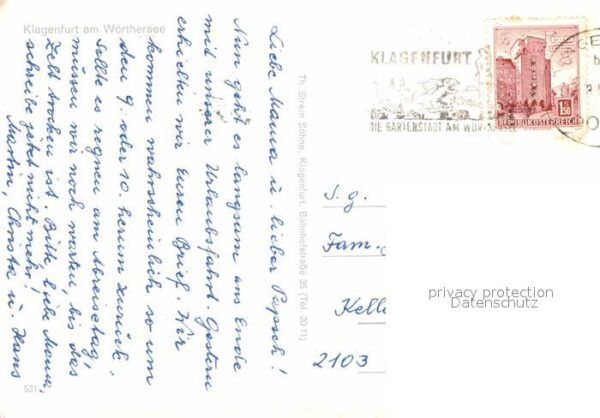 Klagenfurt am Wörthersee
Liebe Mama u. lieber Papsch!
Nun geht es langsam ans Ende
mit unserer Urlaubsfahrt. Gestern
erhielten wir Euren Brief. Wir
kommen wahrscheinlich so um
den 9. oder 10. herum zurück.
Sollte es regnen am Abreisetag,
müssen wir noch warten, bis das
Zelt trocken ist. Bitte liebe Mama,
schreibe jetzt nicht mehr!
Martin, Christa u. Hans
531
Th. Strein Söhne, Klagenfurt, Bahnhofstraße 35 (Tel. 20 11)
KLAGENFURT
DIE GARTENSTADT AM WÖRTHERSEE
1.50
REPUBLIK ÖSTERREICH
S. g.
Fam.
Kell
2103
privacy protection
Datenschutz